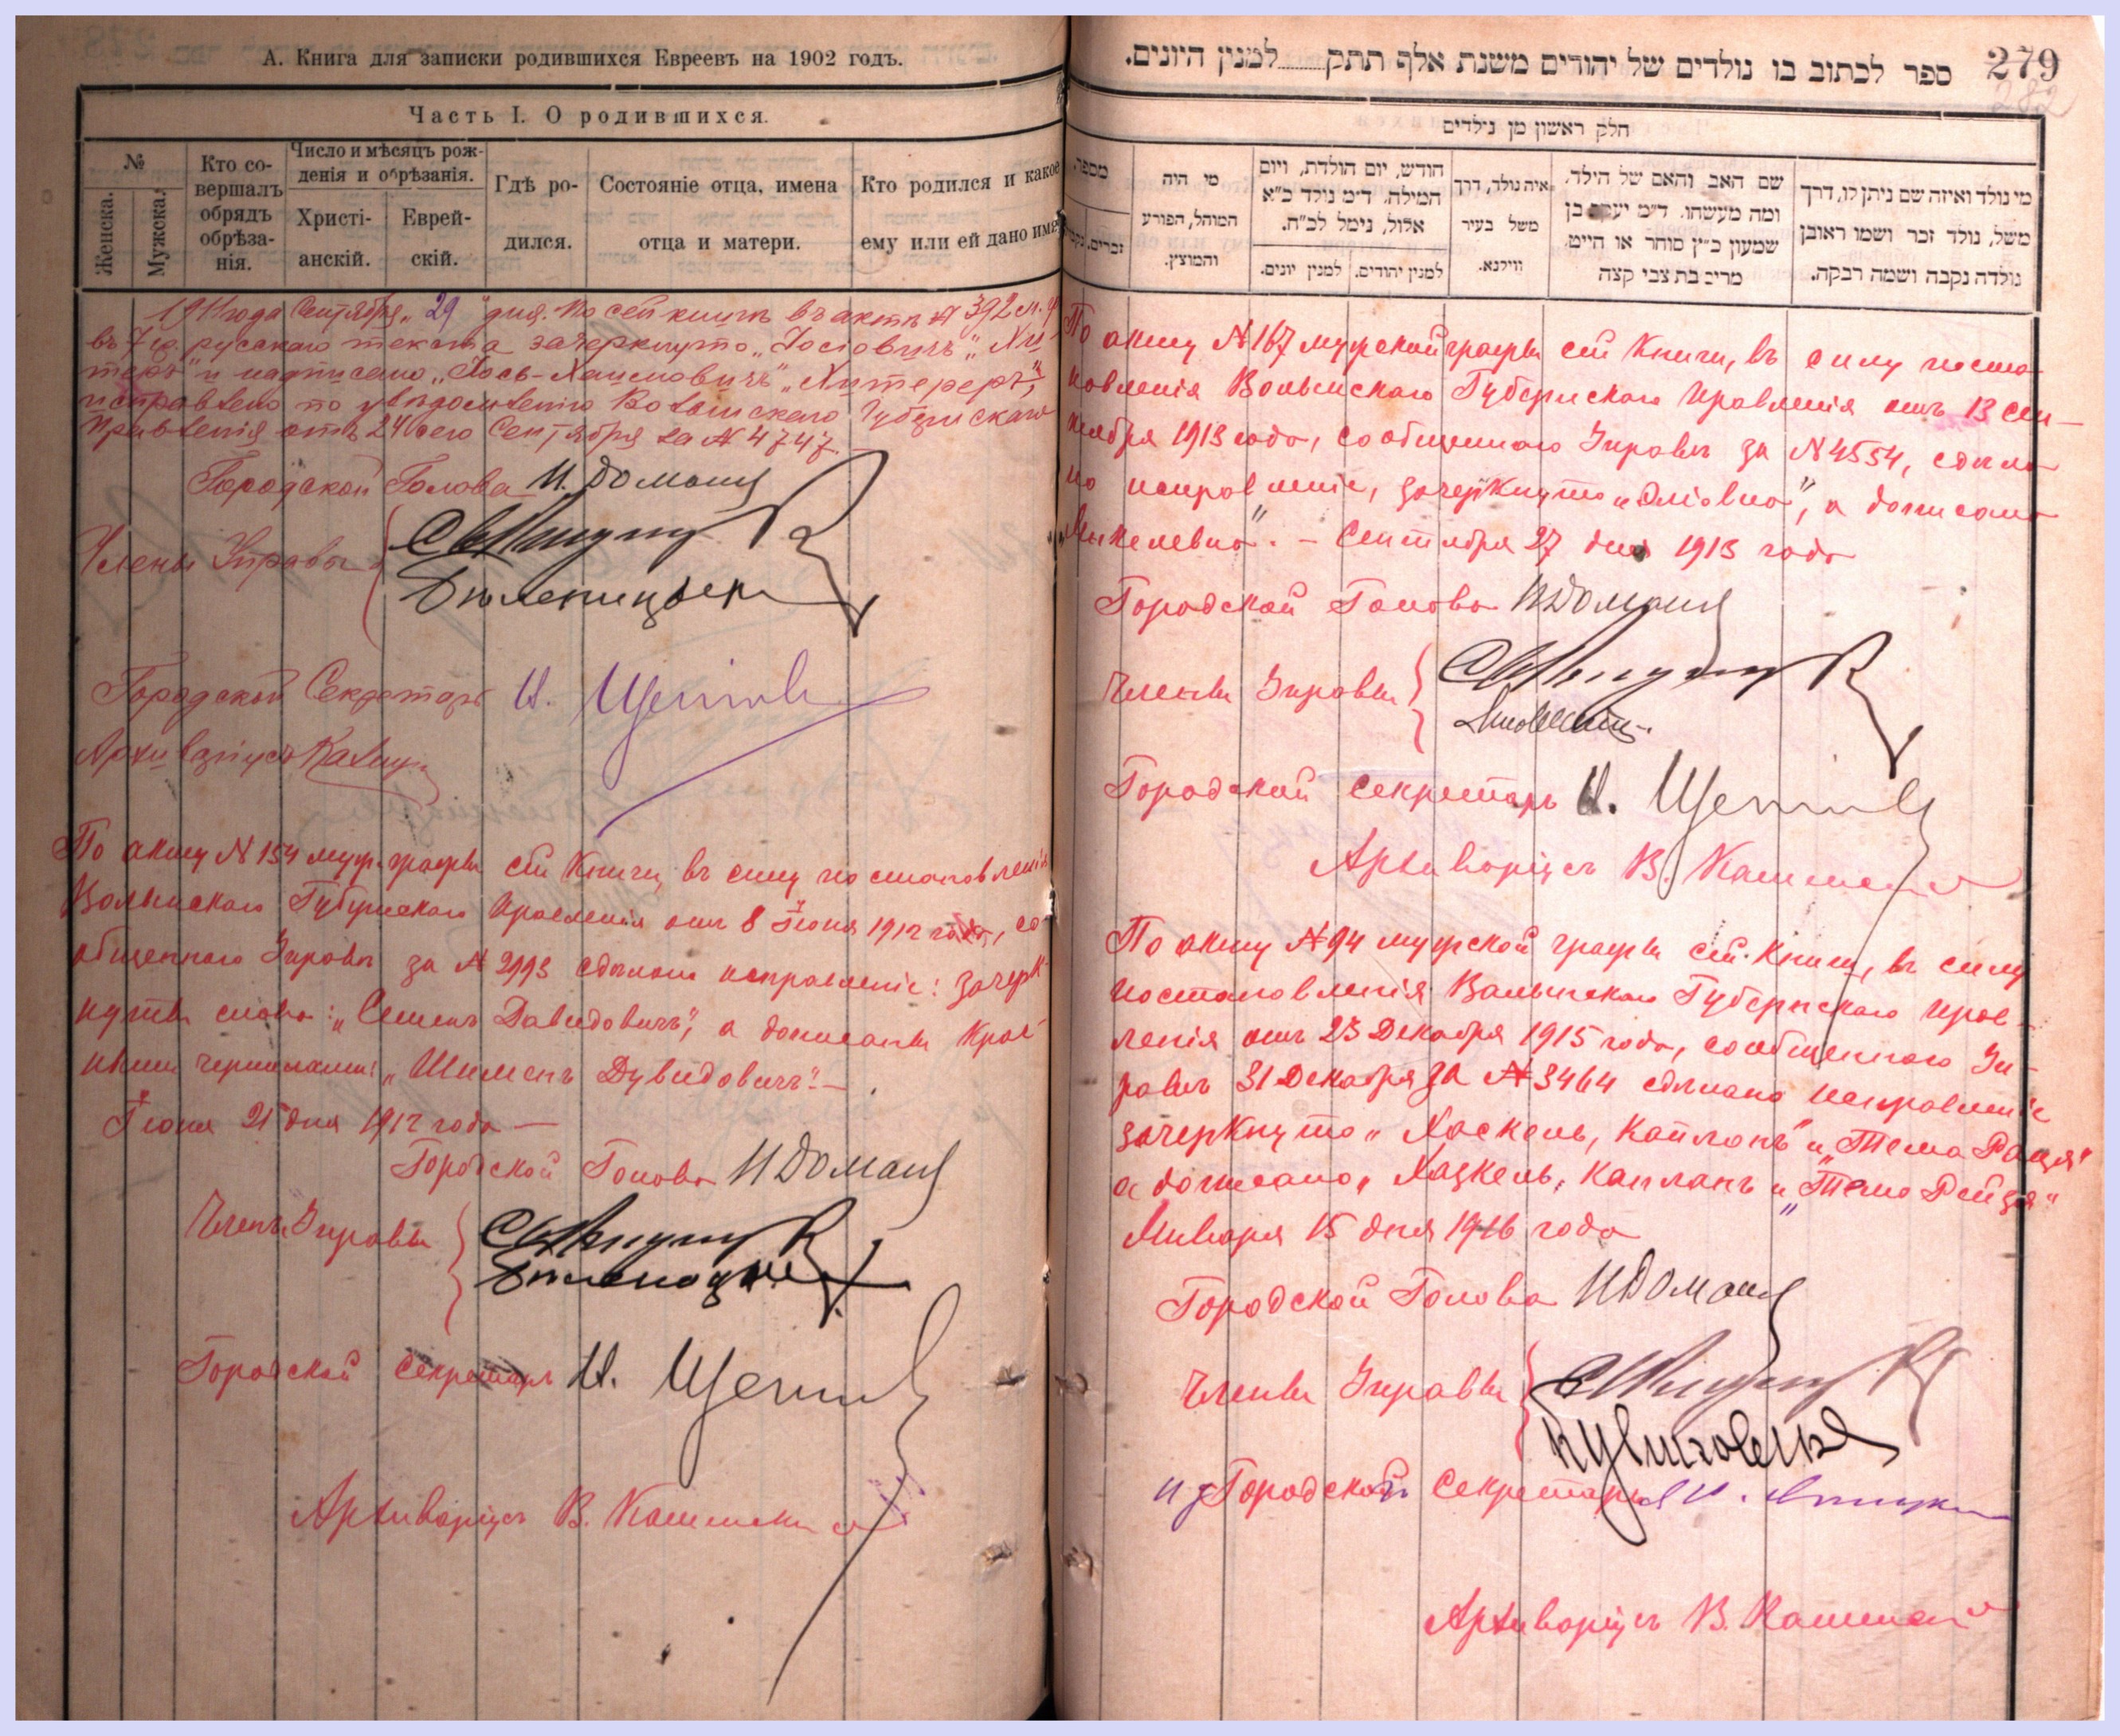 А. Книга для записки родившихся Евреевъ на 1902 годъ.
Часть I. О родившихся.
№
Женска.
Мужска.
Кто со-
вершалъ
обрядъ
обрѣза-
нія.
Число и мѣсяцъ рож-
денія и обрѣзанія.
Христі-
анскій.
Еврей-
скій.
Гдѣ ро-
дился.
Состояніе отца, имена
отца и матери.
Кто родился и какое
ему или ей дано имя
1911 года Сентября „29" дня. По сей книгѣ въ актѣ № 392 м.
въ 7 гр. русскаго текста зачеркнуто „Іосіовичъ"
и надписано „Іось-Хаимовичъ" „Хитереръ",
исправлено по увѣдомленію Волынскаго Губернскаго
Правленія отъ 24 сего Сентября за № 4747.
Городской Голова И. Доманя
Члены Управы
Городской Секретарь И.
Архиваріусъ
По акту № 154 муж. графы сей Книги, въ силу постановленія
Волынскаго Губернскаго Правленія отъ 8 Іюня 1912 года, со-
общеннаго Управѣ за № 2993 сдѣлано исправленіе: зачерк-
нуты слова: „Семенъ Давидовичъ", а дописаны крас-
ными чернилами: „Шименъ Дувидовичъ".—
Іюня 21 дня 1912 года —
Городской Голова И Доманя
Члены Управы
Городской Секретарь И.
Архиваріусъ В.
279
282
ספר לכתוב בו נולדים של יהודים משנת אלף תתק........למנין היונים.
חלק ראשון מן נילדים
מספר.
זכרים.
מי היה
המוהל, הפורע
והמוצץ.
חודש, יום הולדת, ויום
המילה. ד״מ נולד כ״א
אלול, נימל לכ״ח.
למנין יהודים.
למנין יונים.
איה נולד, דרך
משל בעיר
ווילנא.
שם האב והאם של הילד,
ומה מעשהו. ד״מ יעקב בן
שמעון כ״ץ סוחר או חייט.
מרים בת צבי קצה
מי נולד ואיזה שם ניתן לו, דרך
משל, נולד זכר ושמו ראובן
נולדה נקבה ושמה רבקה.
По акту № 167 мужской графы сей Книги, въ силу поста-
новленія Волынскаго Губернскаго Правленія отъ 13 сен-
тября 1913 года, сообщеннаго Управѣ за № 4554, сдѣла-
но исправленіе, зачеркнуто а дописано
— Сентября 27 дня 1913 года
Городской Голова И Доманя
Члены Управы
Городской Секретарь И.
Архиваріусъ В.
По акту № 94 мужской графы сей Книги, въ силу
постановленія Волынскаго Губернскаго Прав-
ленія отъ 23 Декабря 1915 года, сообщеннаго Уп-
равѣ 31 Декабря за № 3464 сдѣлано исправленіе
зачеркнуто „Хаскель, Капланъ" и „Тема Рация"
а дописано „Хацкель, Капланъ и „Тема Рейзя"
Января 15 дня 1916 года
Городской Голова И Доманя
Члены Управы
Городской Секретарь
Архиваріусъ В.